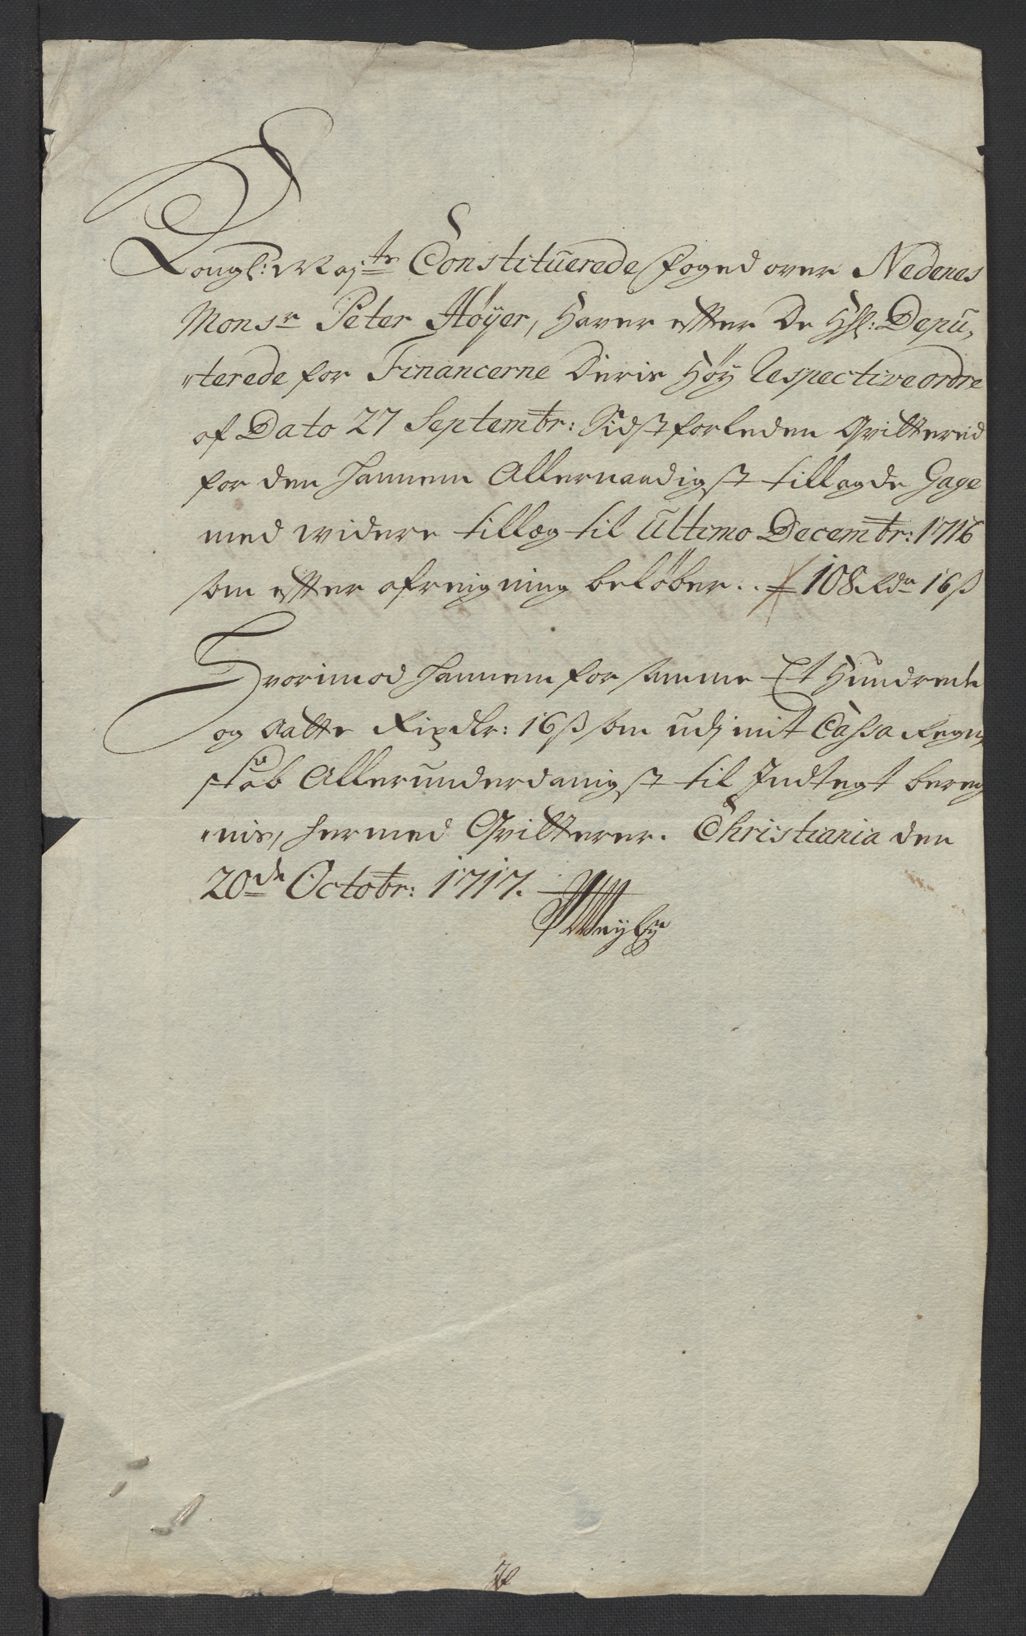 Kongl: Maj:ts Constituerede foged over Nedenes
Monsr Peter Höyer, haver efter De HHl: Depu,
terede for Financerne Deris Höy Respective ordre
af Dato 27 Septembr: Sidstforleden Qvittered
for den hannem Allernaadigst tillagde Gage
med widere tillæg til Ultimo Decembr: 1716
som efter afreigning beløber .. 108 Rdr 16 ß
Hvorimod hannem for samme Et Hundrede
og Aatte Rixdlr: 16 ß som udj mit Cassa Regn,
skab Allerunderdanigst til Indtegt bereg
nis, hermed Qvitterer. Christiania den
20de Octobr: 1717.